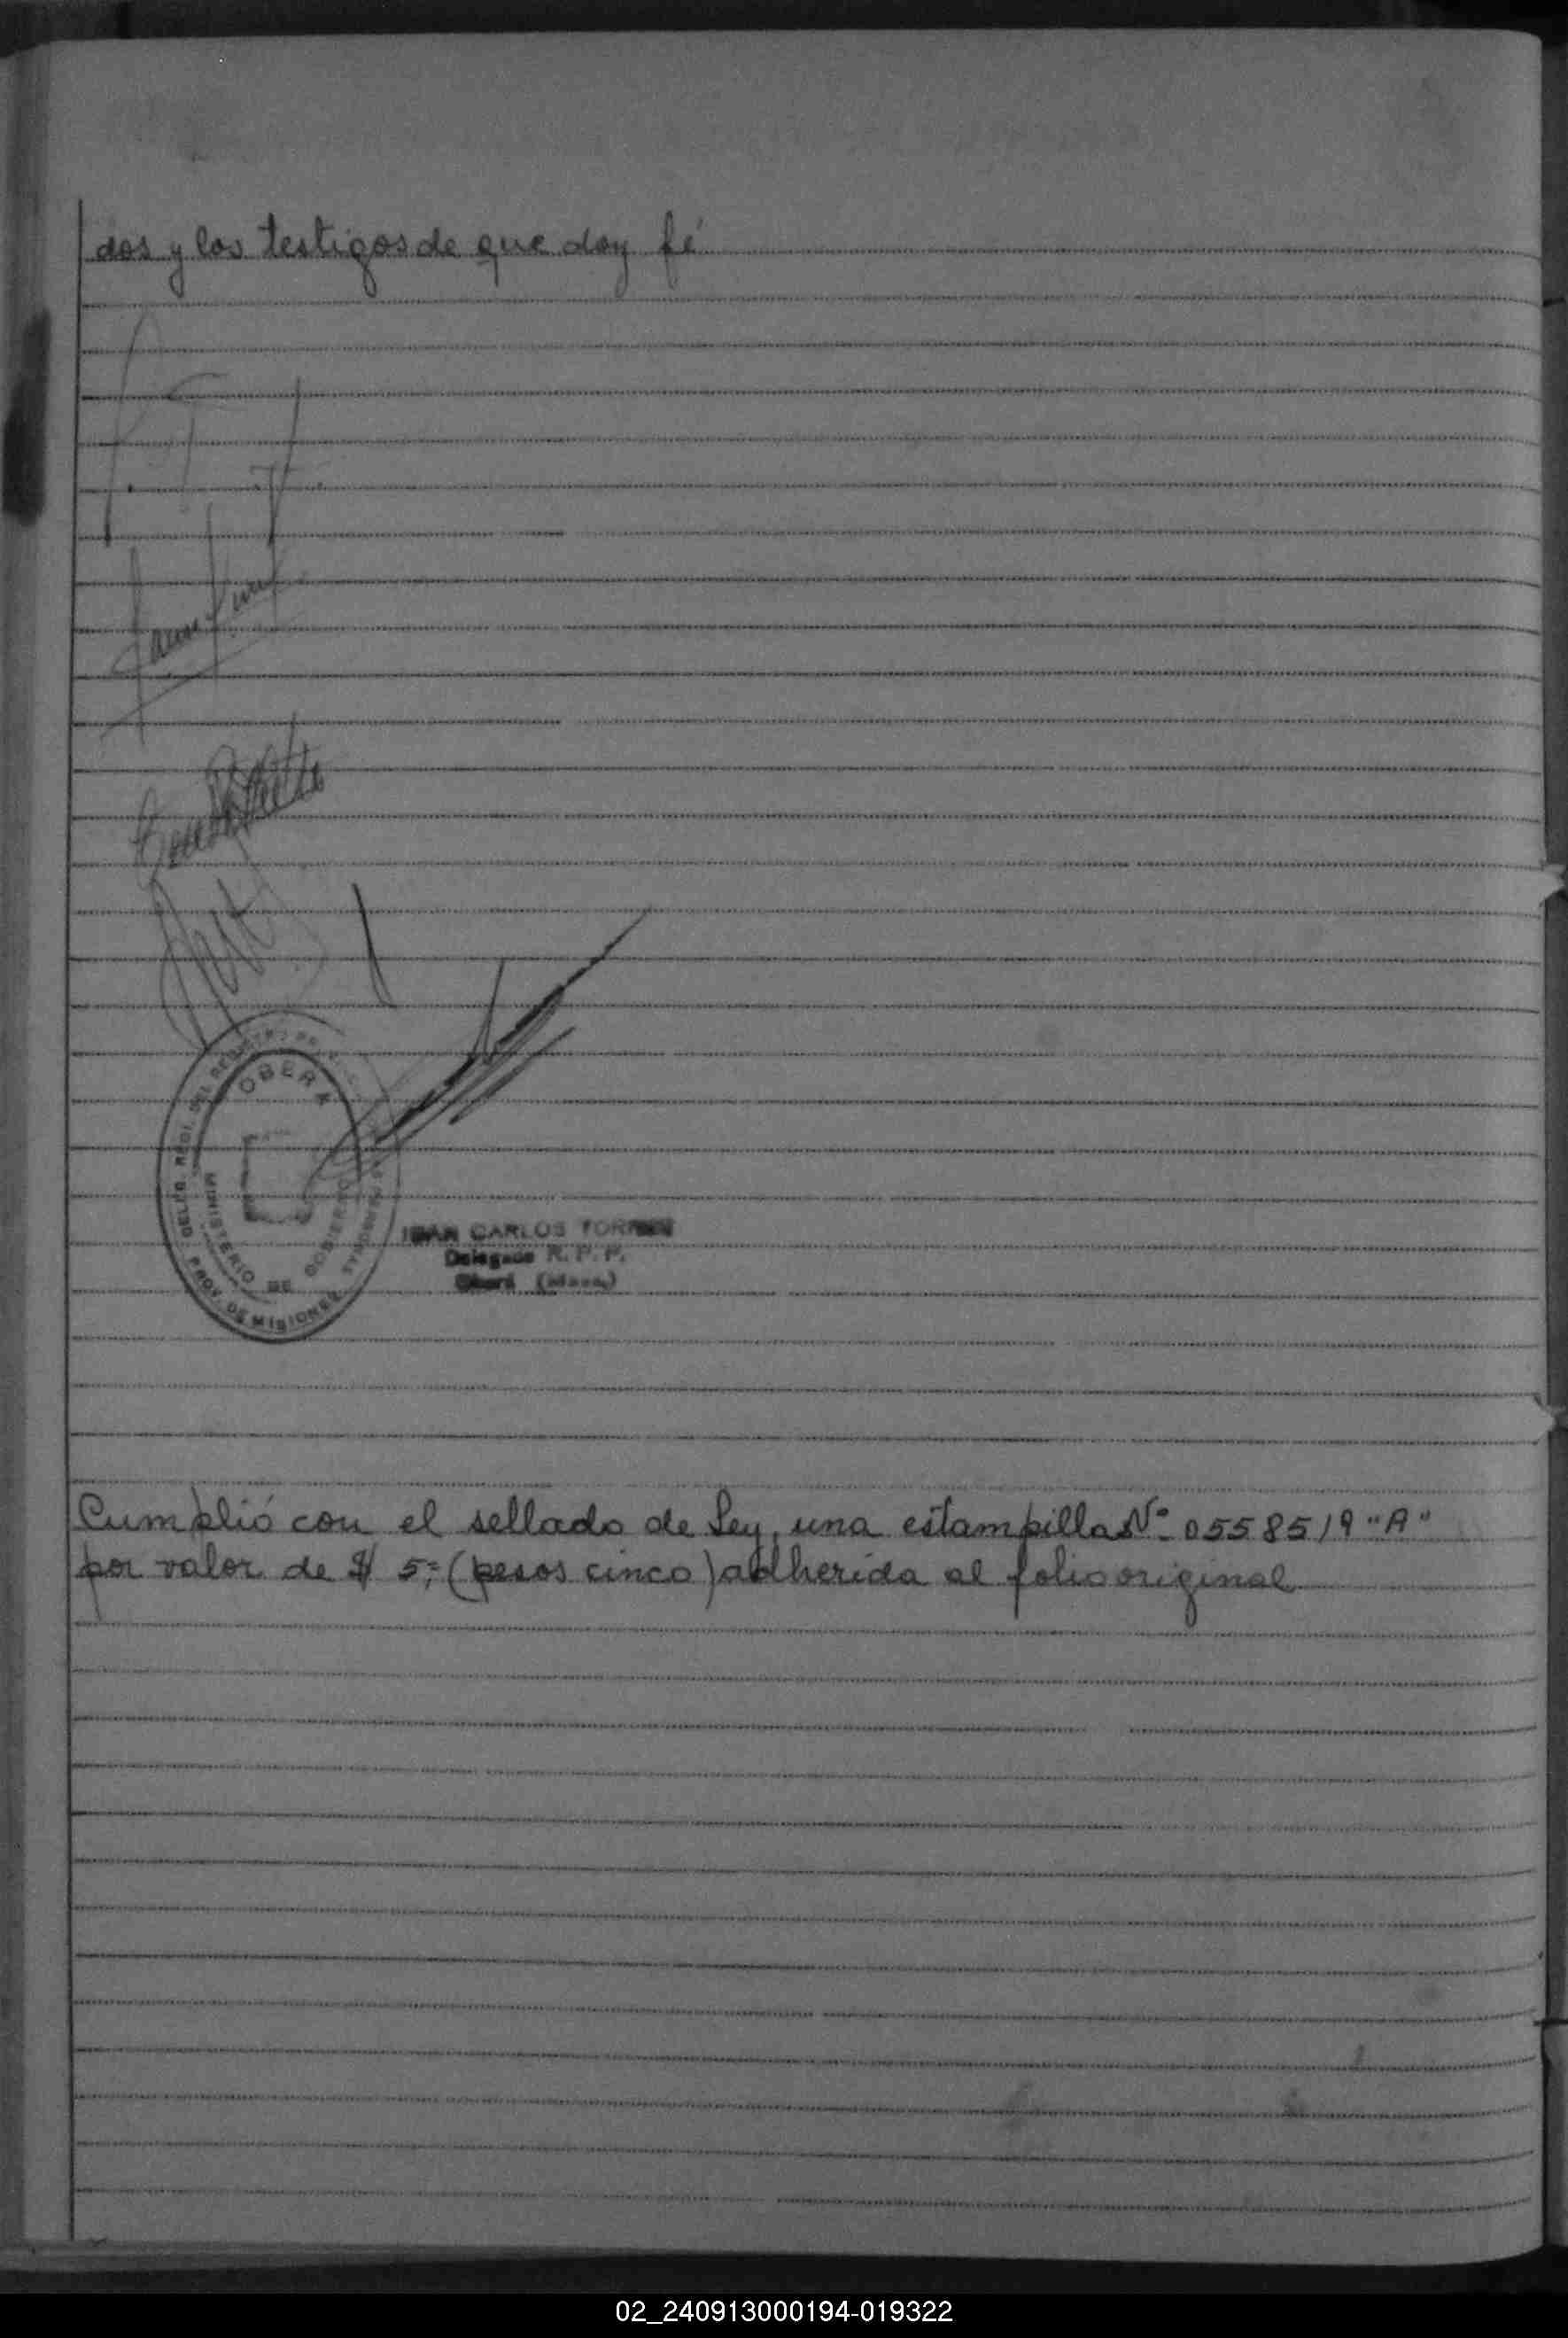 dos y los testigos de que doy fé
OBERA
MINISTERIO DE GOBIERNO
PROV. DE MISIONES
CARLOS TORRES
Delegado R. P. P.
Oberá (Mnes.)
Cumplió con el sellado de Ley, una estampilla Nº 0558519 "A"
por valor de $ 5,= (pesos cinco) adherida al folio original
02_240913000194-019322